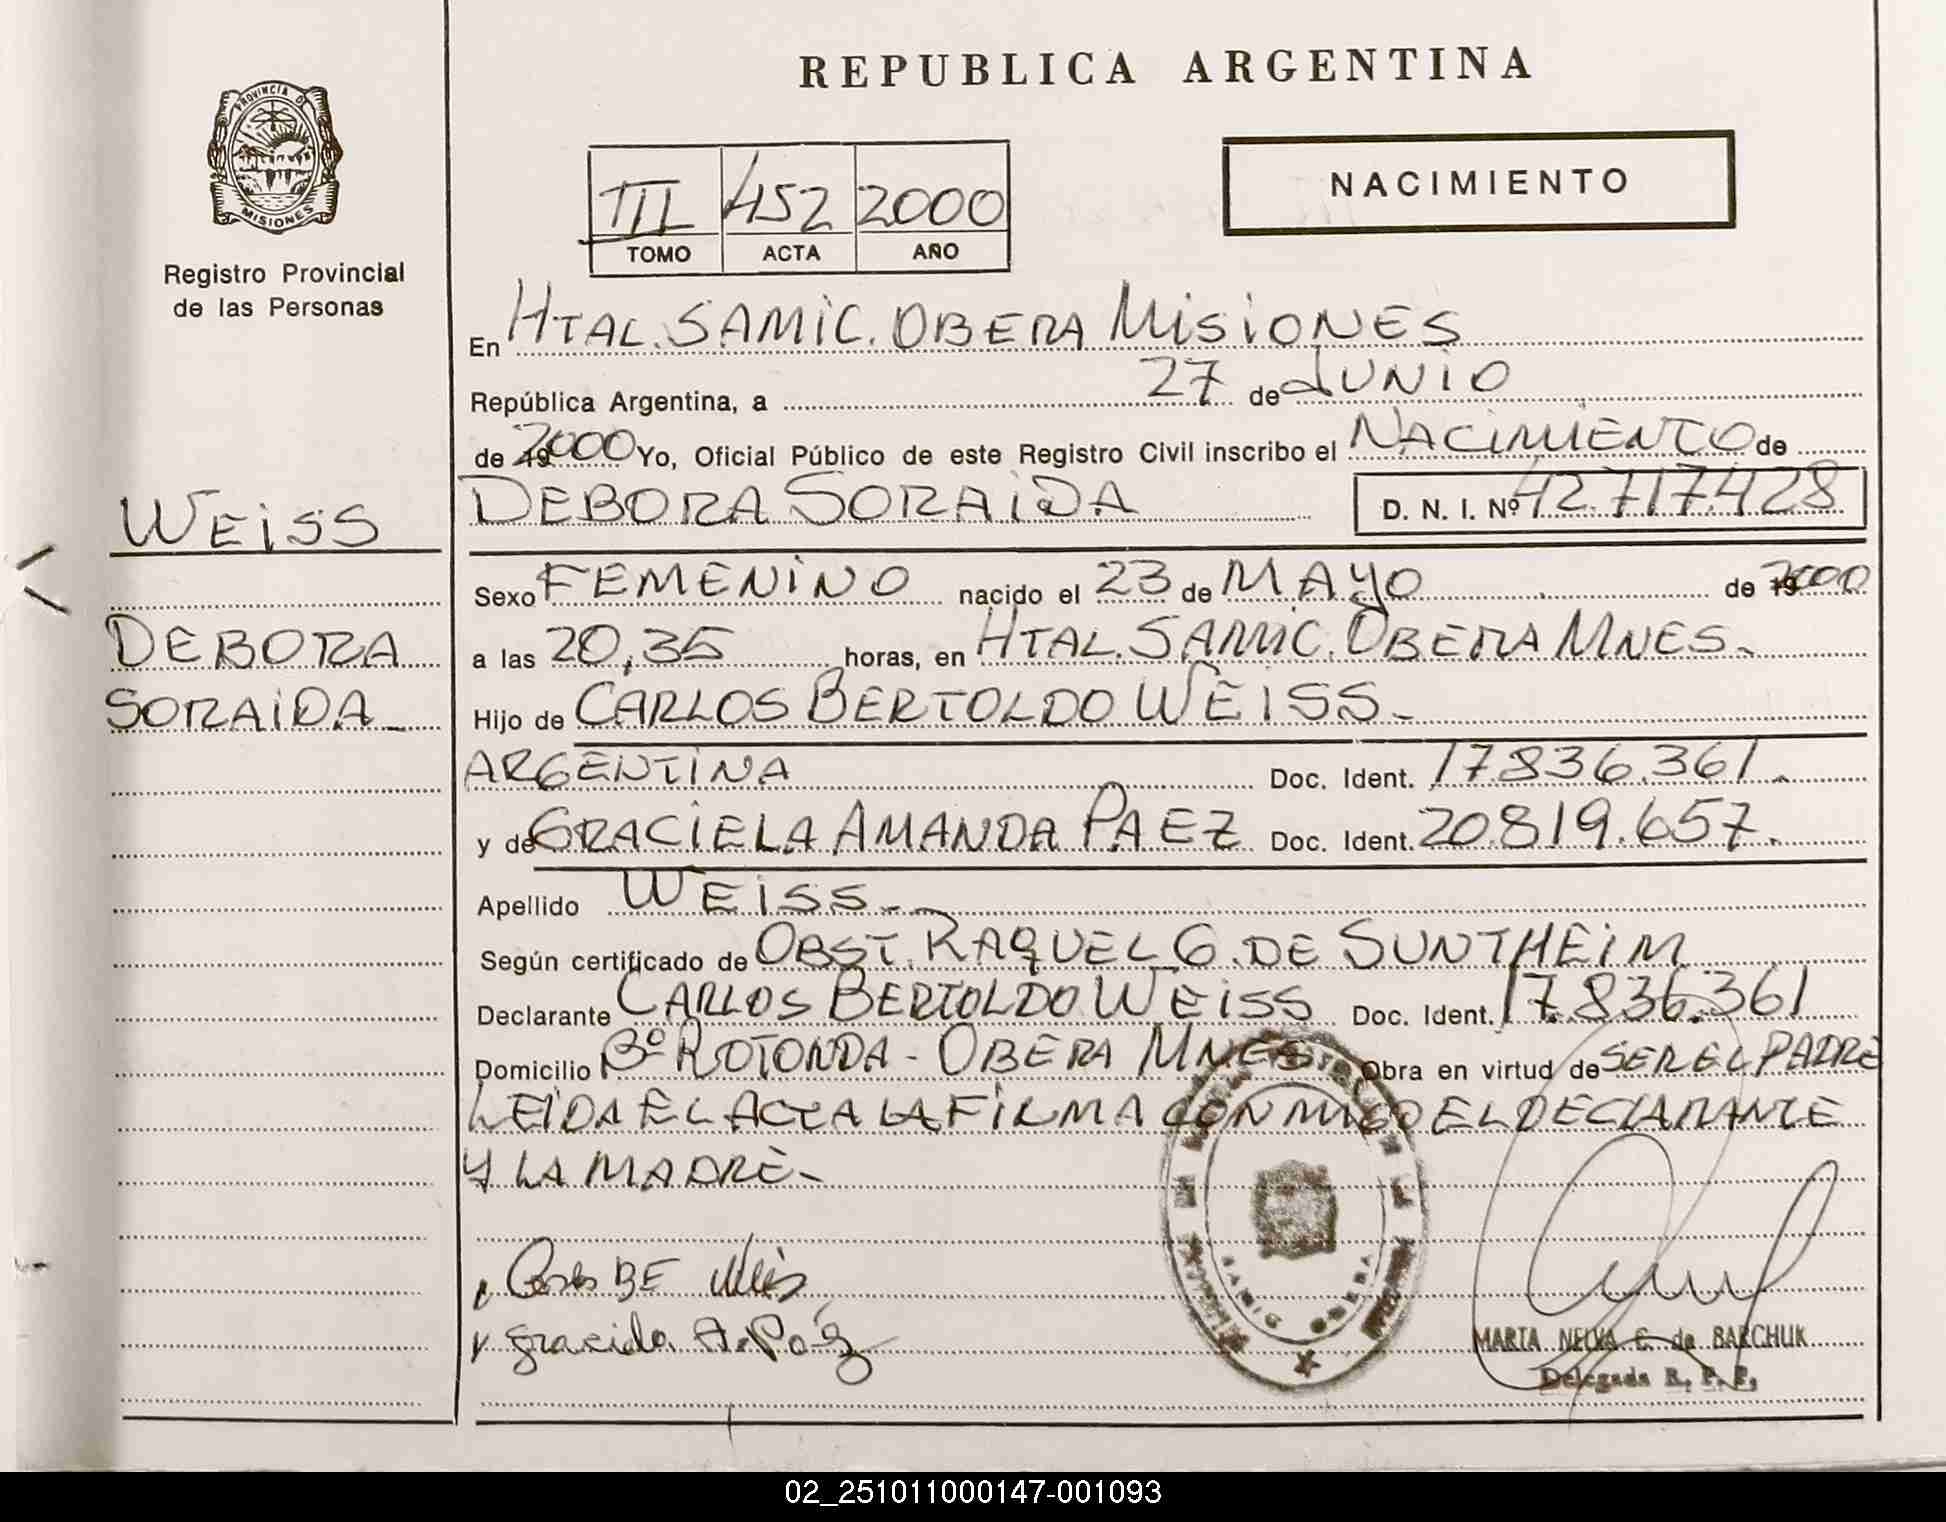 REPUBLICA ARGENTINA
PROVINCIA DE
MISIONES
Registro Provincial
de las Personas
III 452 2000
TOMO ACTA AÑO
NACIMIENTO
En HTAL. SAMIC. OBERA MISIONES
República Argentina, a 27 de JUNIO
de 2000 Yo, Oficial Público de este Registro Civil inscribo el NACIMIENTO de
DEBORA SORAIDA D. N. I. Nº 42.717.428
WEISS
DEBORA
SORAIDA
Sexo FEMENINO nacido el 23 de MAYO de 2000
a las 20,35 horas, en HTAL. SAMIC. OBERA MNES.
Hijo de CARLOS BERTOLDO WEISS
ARGENTINA Doc. Ident. 17.836.361.
y de GRACIELA AMANDA PAEZ Doc. Ident. 20.819.657.
Apellido WEISS
Según certificado de OBST. RAQUEL G. DE SUNTHEIM
Declarante CARLOS BERTOLDO WEISS Doc. Ident. 17.836.361
Domicilio Bº ROTONDA - OBERA MNES Obra en virtud de SER EL PADRE
LEIDA EL ACTA LA FIRMA CONMIGO EL DECLARANTE
Y LA MADRE-
Graciela A. Paéz
SAMIC OBERA
MARTA NELVA E. de BARCHUK
Delegada R. P. P.
02_251011000147-001093